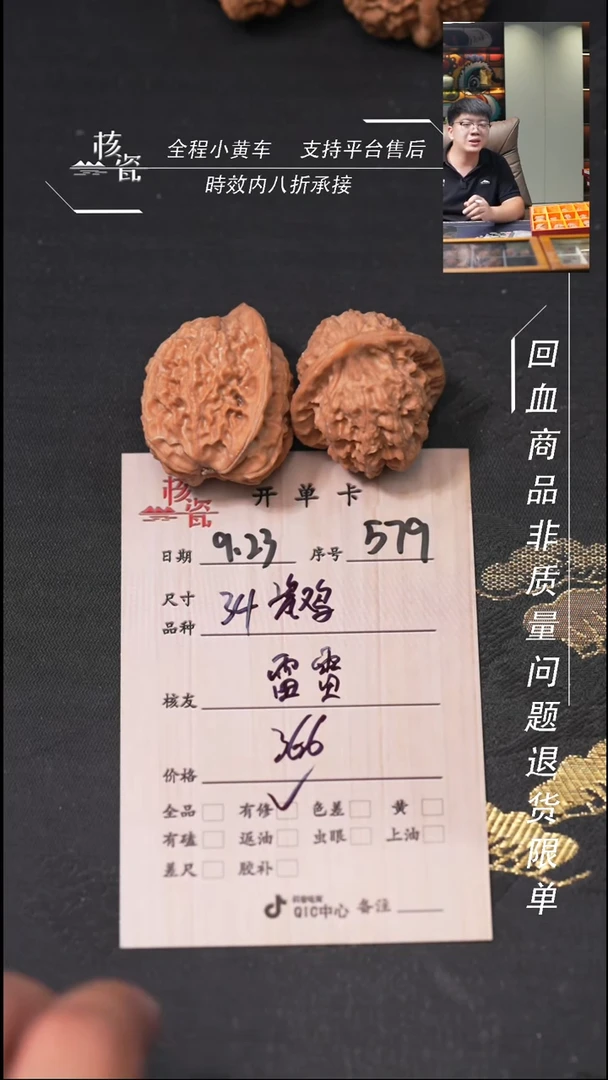 核瓷
全程小黄车 支持平台售后
時效内八折承接
回血商品非质量问题退货限单
核瓷
开单卡
日期 9.23 序号 579
尺寸 34
品种
核友 雷
价格 366
全品 有修 ✓ 色差 黄
有磕 返油 虫眼 上油
差尺 胶补
抖音电商
QIC中心 备注